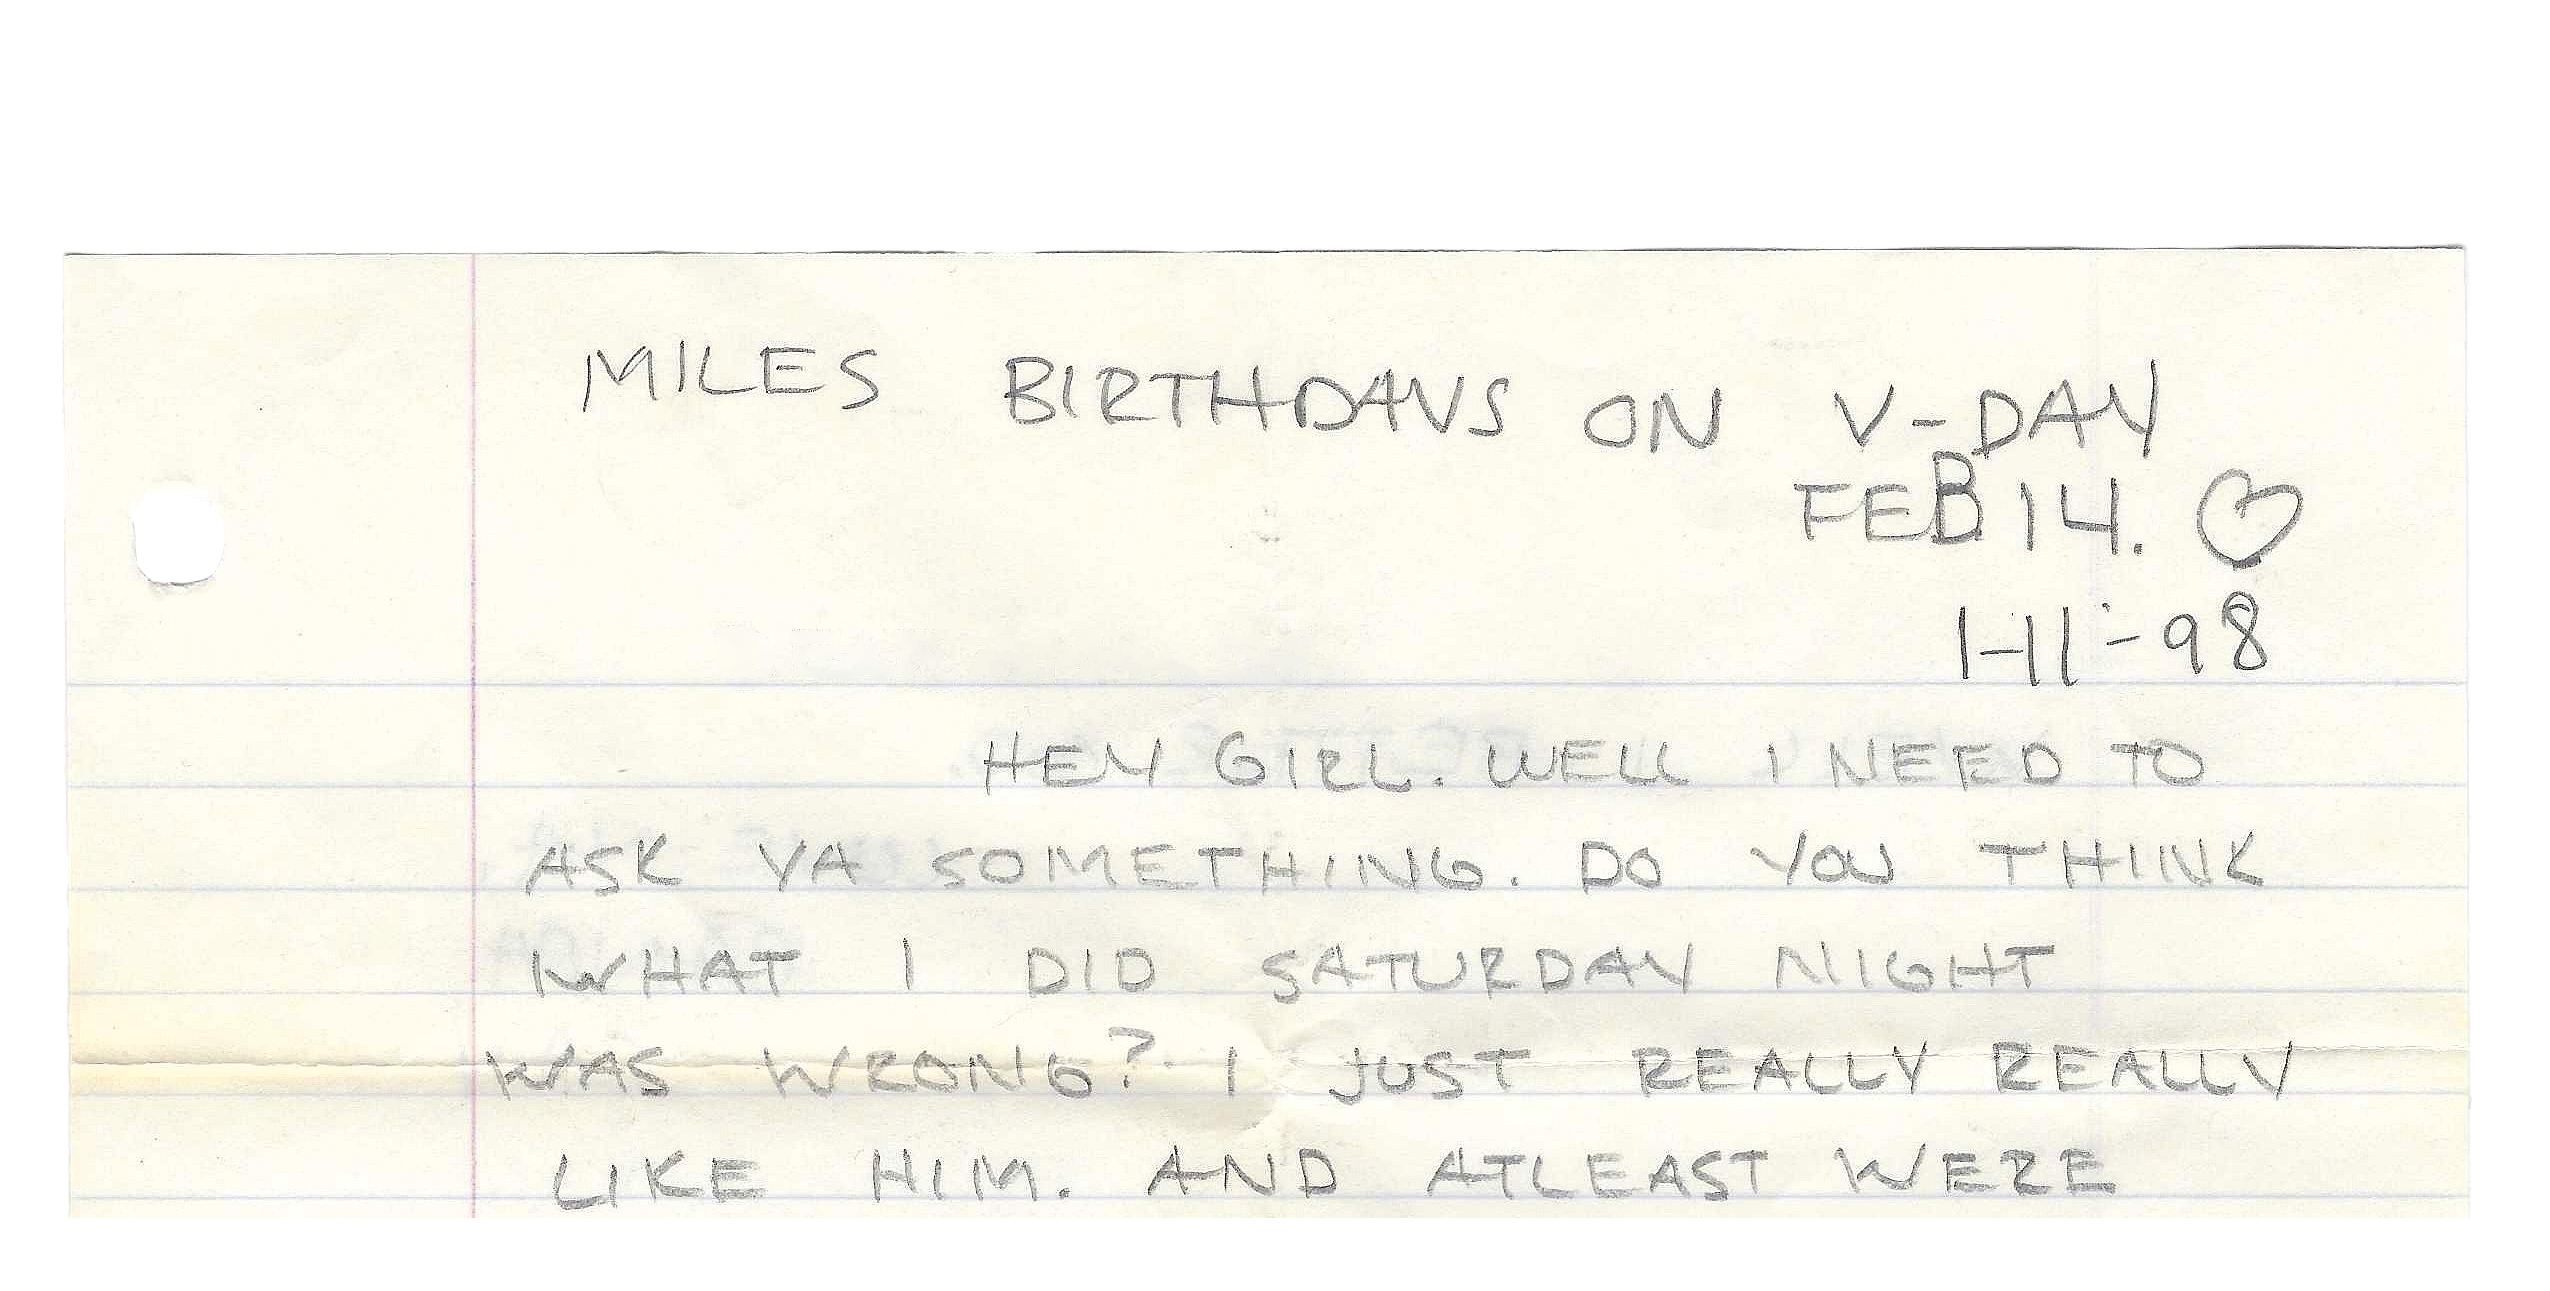 MILES BIRTHDAYS ON V-DAY
FEB 14. ♡
1-11-98
HEY GIRL. WELL I NEED TO
ASK YA SOMETHING. DO YOU THINK
WHAT I DID SATURDAY NIGHT
WAS WRONG? I JUST REALLY REALLY
LIKE HIM. AND ATLEAST WERE